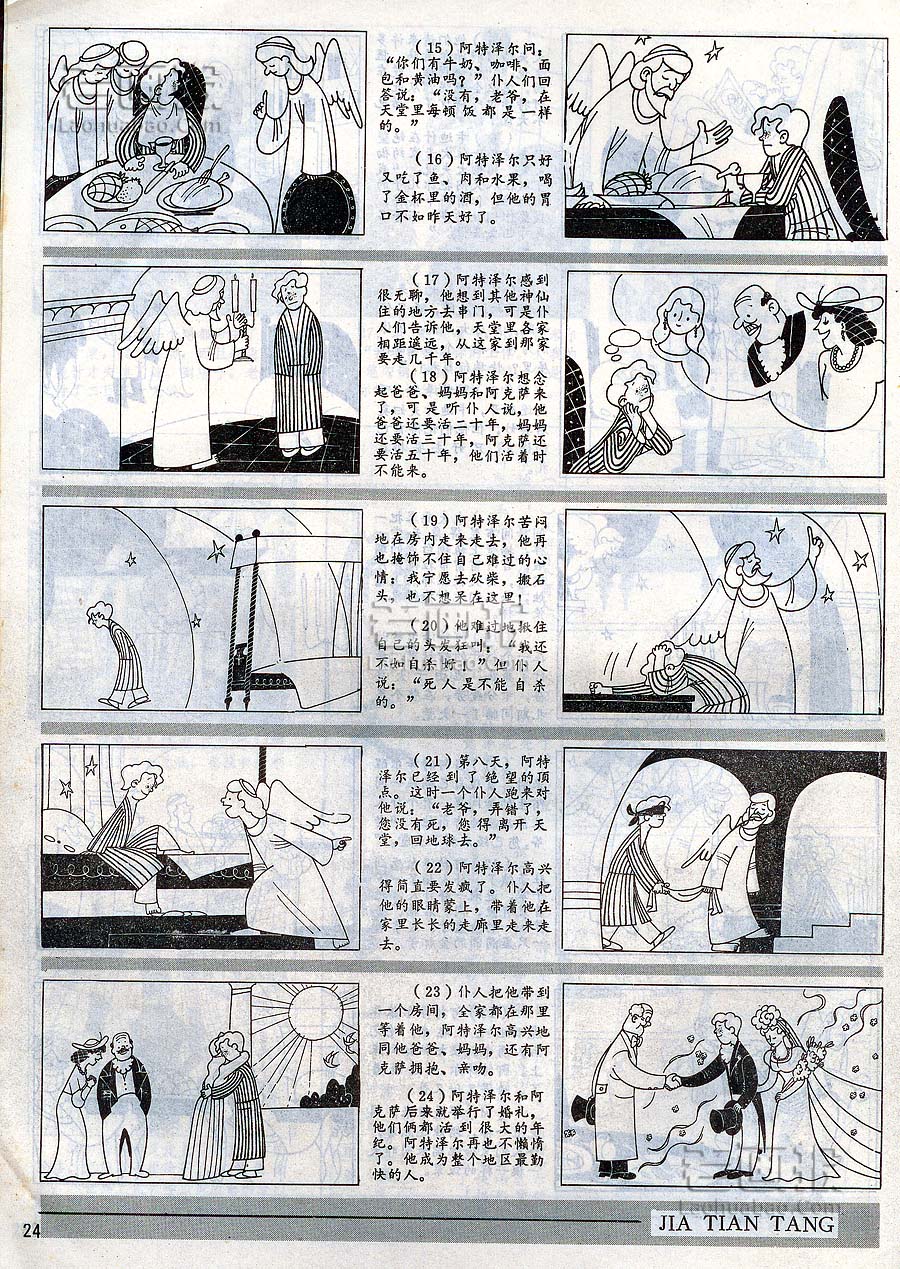 （15）阿特泽尔问：
“你们有牛奶、咖啡、面
包和黄油吗？”仆人们回
答说：“没有，老爷，在
天堂里每顿饭都是一样
的。”
（16）阿特泽尔只好
又吃了鱼、肉和水果，喝
了金杯里的酒，但他的胃
口不如昨天好了。
（17）阿特泽尔感到
很无聊，他想到其他神仙
住的地方去串门，可是仆
人们告诉他，天堂里各家
相距遥远，从这家到那家
要走几千年。
（18）阿特泽尔想念
起爸爸、妈妈和阿克萨来
了，可是听仆人说，他
爸爸还要活二十年，妈妈
还要活三十年，阿克萨还
要活五十年，他们活着时
不能来。
（19）阿特泽尔苦闷
地在房内走来走去，他再
也掩饰不住自己难过的心
情：我宁愿去砍柴，搬石
头，也不想呆在这里！
（20）他难过地揪住
自己的头发狂叫：“我还
不如自杀好！”但仆人
说：“死人是不能自杀
的。”
（21）第八天，阿特
泽尔已经到了绝望的顶
点。这时一个仆人跑来对
他说：“老爷，弄错了，
您没有死，您得离开天
堂，回地球去。”
（22）阿特泽尔高兴
得简直要发疯了。仆人把
他的眼睛蒙上，带着他在
家里长长的走廊里走来走
去。
（23）仆人把他带到
一个房间，全家都在那里
等着他，阿特泽尔高兴地
同他爸爸、妈妈，还有阿
克萨拥抱、亲吻。
（24）阿特泽尔和阿
克萨后来就举行了婚礼，
他们俩都活到很大的年
纪。阿特泽尔再也不懒惰
了。他成为整个地区最勤
快的人。
24
JIA TIAN TANG
老画报
Laohuabao.Com